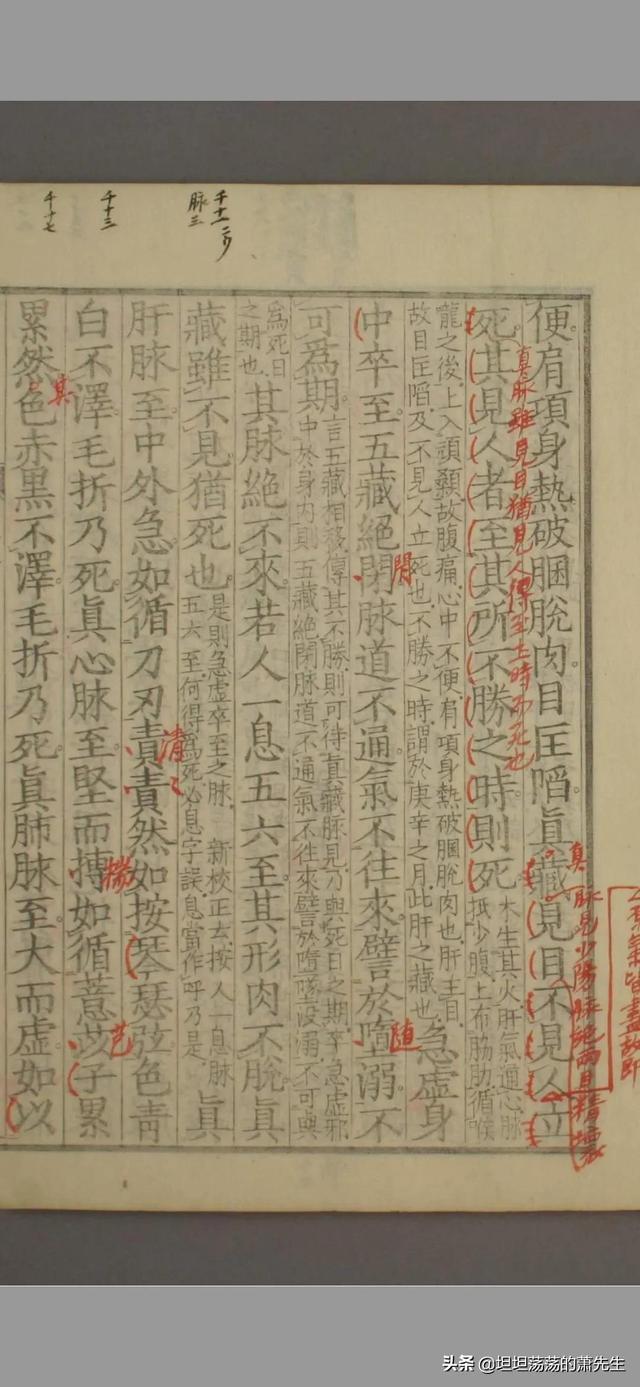 千十一二ウ
脉三
千十三
千十七
便肩項身熱破䐃脫肉目匡陷真藏見目不見人立
死其見人者至其所不勝之時則死
木生其火肝氣通心脉
抵少腹上布脇肋循喉
嚨之後上入頏顙故腹痛心中不便肩項身熱破䐃脫肉也肝主目
故目匡陷及不見人立死也不勝之時謂於庚辛之月此肝之藏也
急虛身
中卒至五藏絕閉脉道不通氣不往來譬於墮溺不
可為期
言五藏相移傳其不勝則可待真藏脉見乃與死日之期卒急虛邪
中於身內則五藏絕閉脉道不通氣不往來譬於墮墜沒溺不可與
為死日
之期也
其脉絕不來若人一息五六至其形肉不脫真
藏雖不見猶死也
是則急虛卒至之脉 新校正云按人一息脉
五六至何得為死必息字誤息當作呼乃是
真
肝脉至中外急如循刀刃責責然如按琴瑟弦色青
白不澤毛折乃死真心脉至堅而搏如循薏苡子累
累然色赤黑不澤毛折乃死真肺脉至大而虛如以
真脉雖見目猶見人得至土時而死也
真
脉見少陽脉絕而目精壞
氣皆盡故即
閇
随
清
搏
芑
其
头条 @坦坦荡荡的萧先生